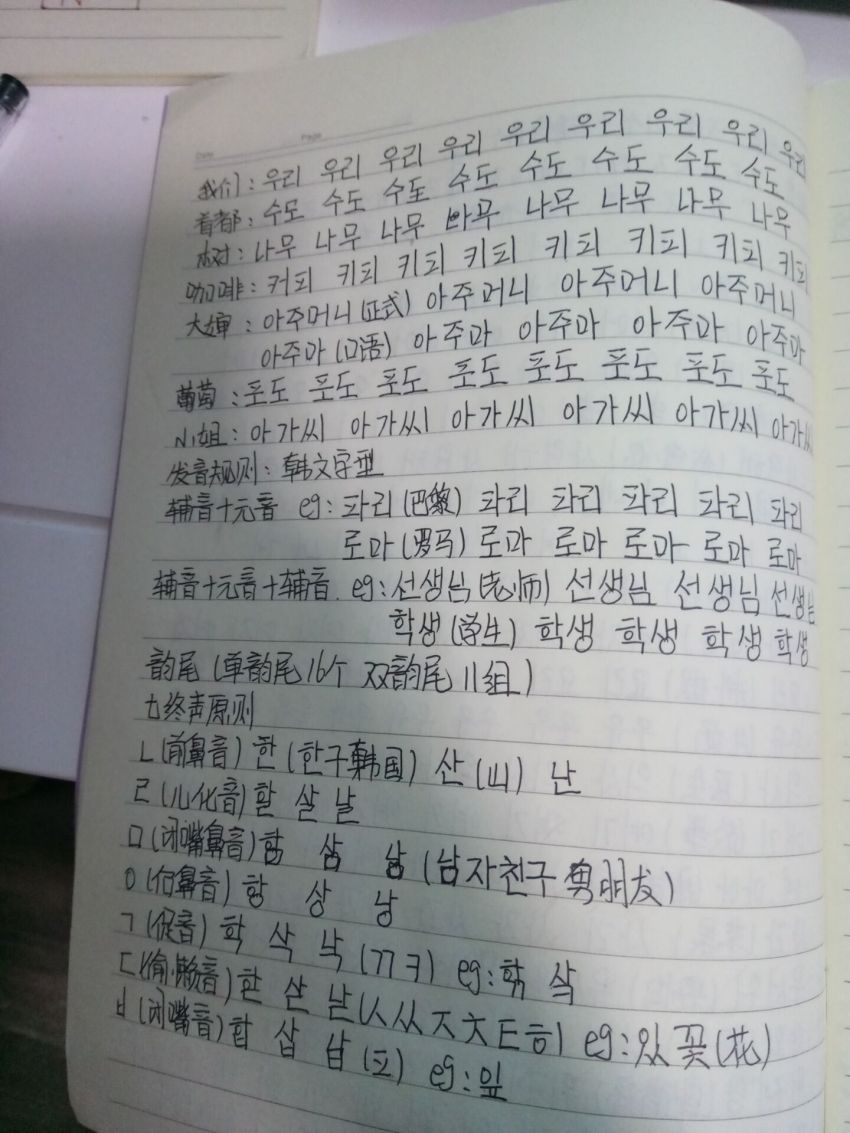 Date Page
我们：우리 우리 우리 우리 우리 우리 우리 우리 우리
首都：수도 수도 수도 수도 수도 수도 수도 수도
树：나무 나무 나무 나무 나무 나무 나무
咖啡：커피 키피 키피 키피 키피 키피 키피 키피
大婶：아주머니(正式) 아주머니 아주머니 아주머니
아주마(口语) 아주마 아주마 아주마 아주마
葡萄：포도 포도 포도 포도 포도 포도 포도 포도
小姐：아가씨 아가씨 아가씨 아가씨 아가씨 아가씨
发音规则：韩文字型
辅音十元音 eg：파리(巴黎) 파리 파리 파리 파리 파리
로마(罗马) 로마 로마 로마 로마 로마
辅音十元音十辅音. eg：선생님(老师) 선생님 선생님 선생님
학생(学生) 학생 학생 학생 학생
韵尾(单韵尾16个 双韵尾11组)
七终声原则
ㄴ(前鼻音) 한(한구韩国) 산(山) 난
ㄹ(儿化音) 할 살 날
ㅁ(闭嘴鼻音) 함 삼 남(남자친구 男朋友)
ㅇ(后鼻音) 항 상 낭
ㄱ(促音) 학 삭 낙(ㄲㅋ) eg：학 삭
ㄷ(偷懒音) 핟 삳 낟(ㅅㅆㅈㅊㅌㅎ) eg：있 꽃(花)
ㅂ(闭嘴音) 합 삽 납(ㅍ) eg：잎